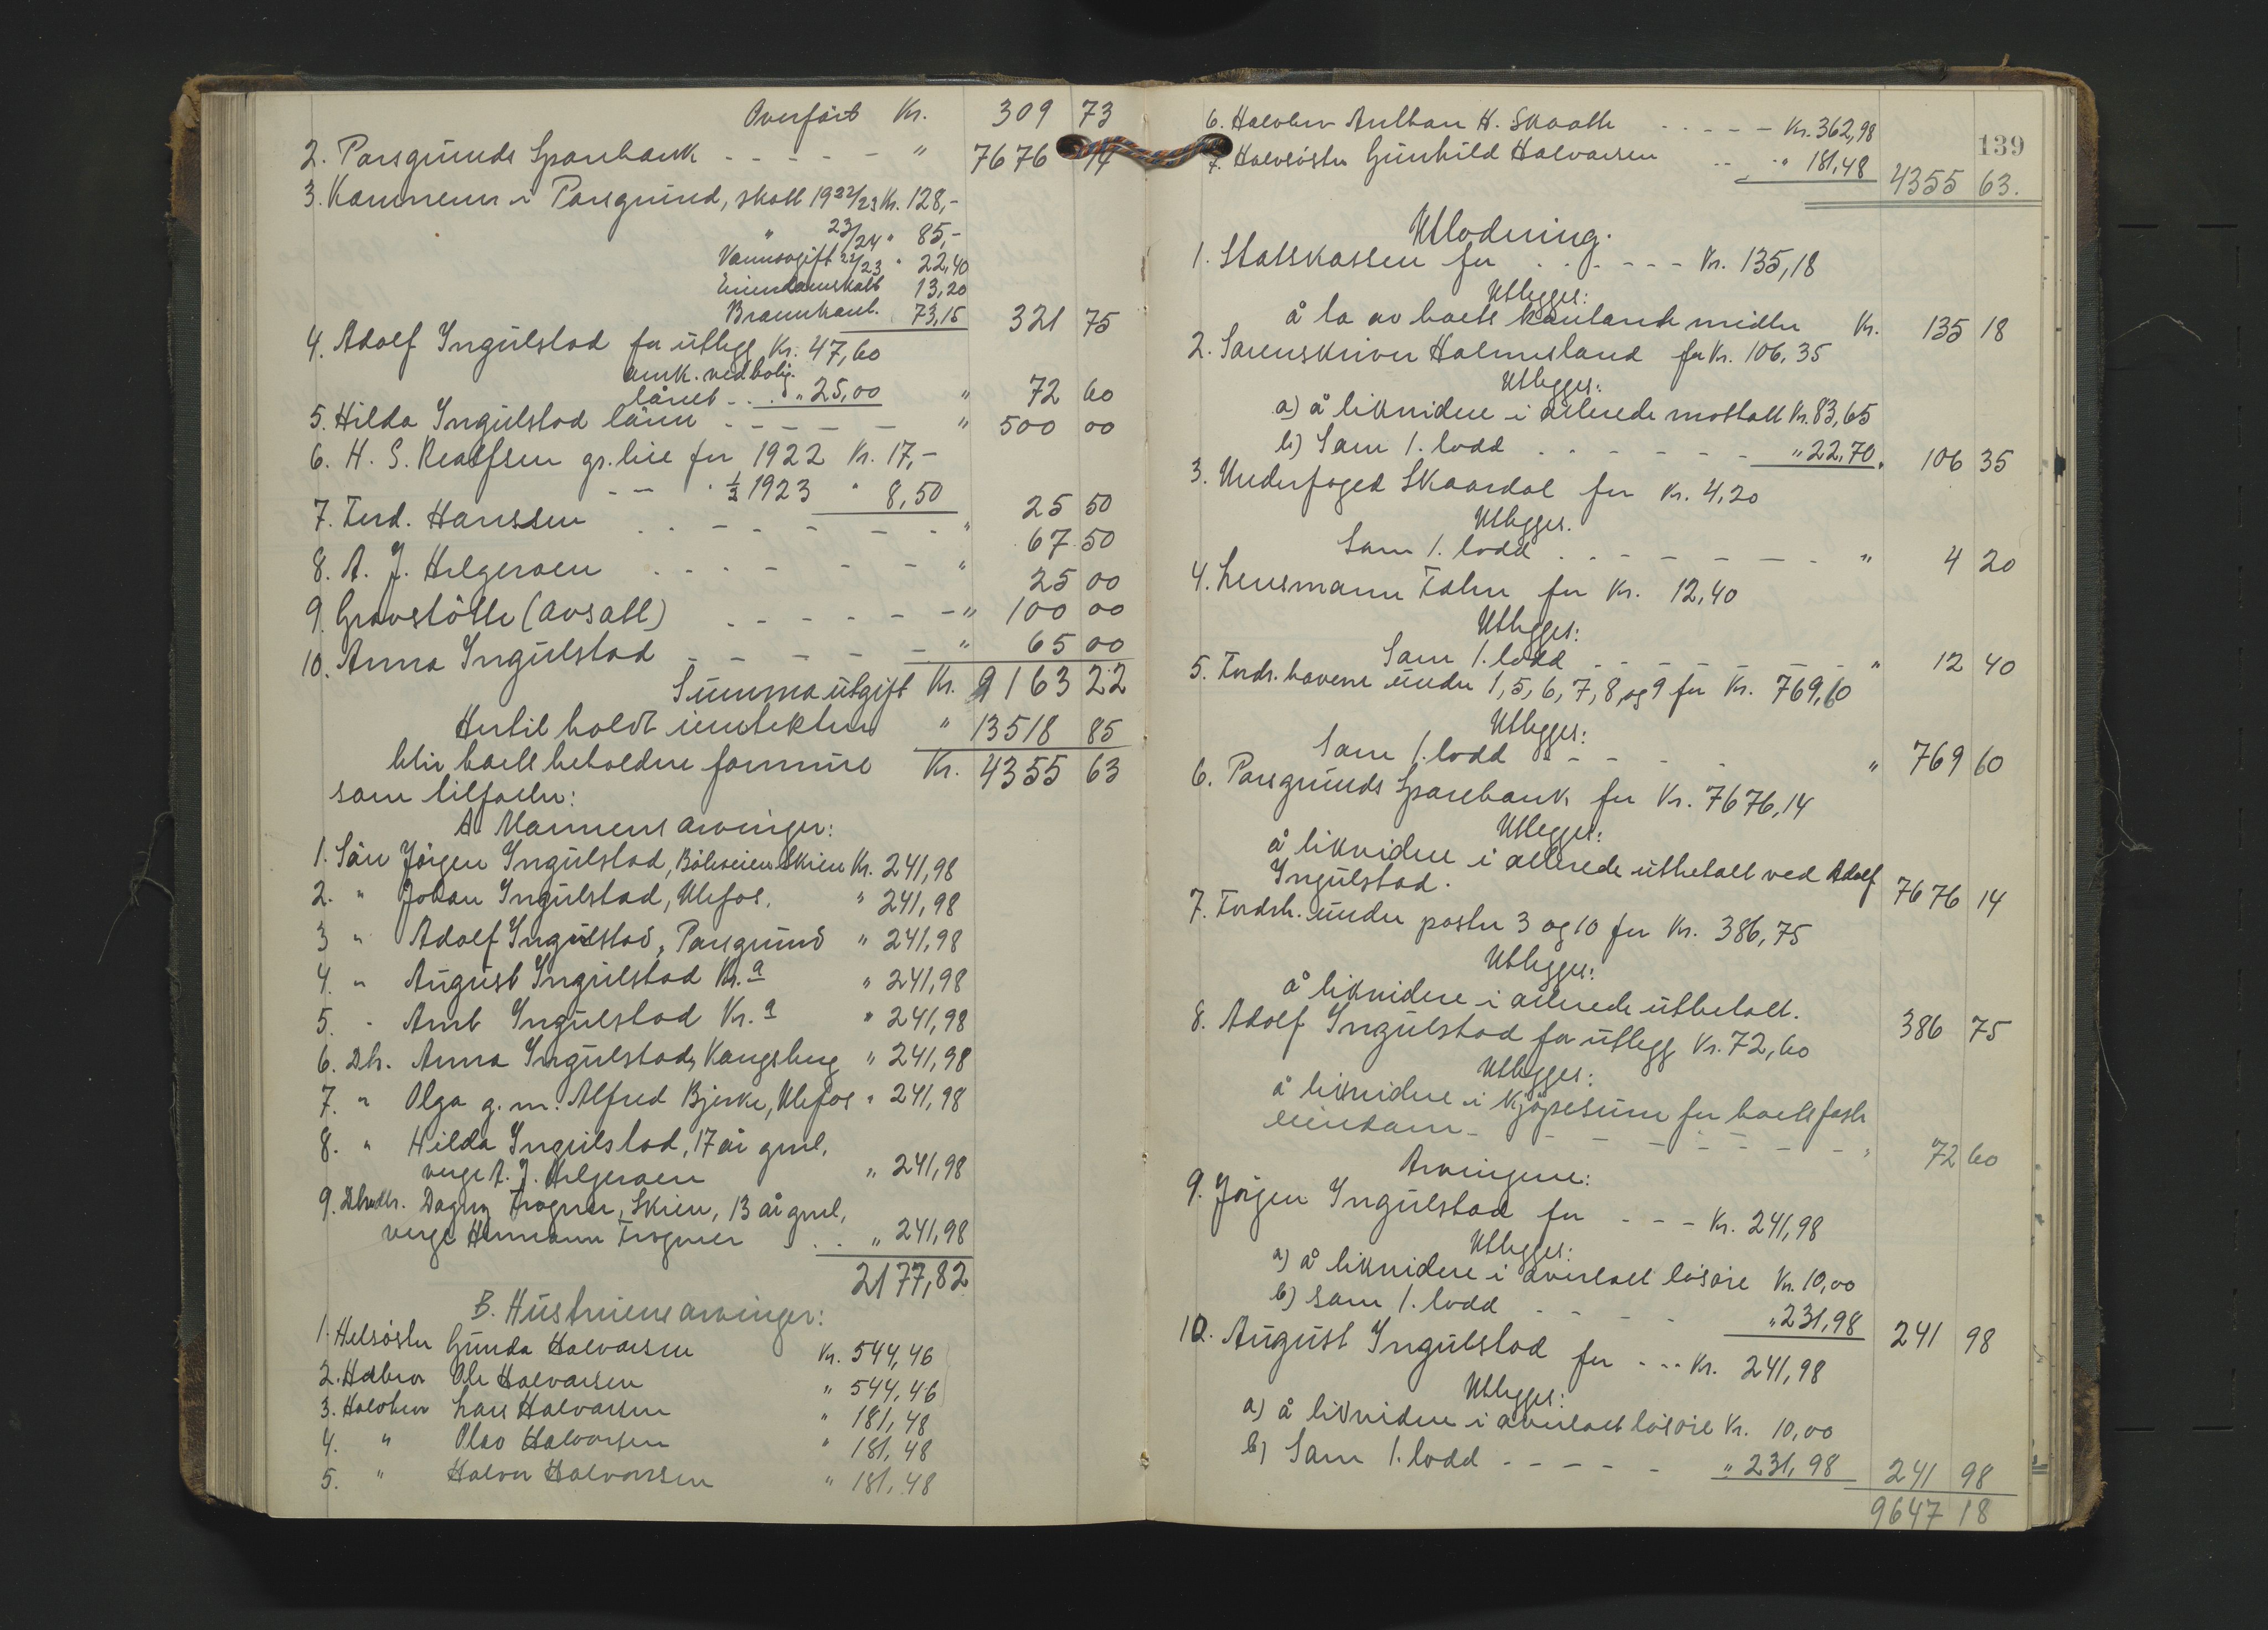 Overført Kr. 309 73
2. Porsgrunds Sparebank - - - - - " 7676 14
3. Kæmneren i Porsgrund, skatt 1922/23 Kr. 128,-
" 23/24 " 85,-
Vannavgift 22/23 " 22,40
Eiendomskatt 13,20
Brannkont. 73,15 321 75
4. Adolf Ingulstad for utlegg Kr. 47,60
omk. ved bolig-
lånet - . . " 25,00 " 72 60
5. Hilda Ingulstad lønn - - - - - " 500 00
6. H. S. Realfsen gr.leie for 1922 Kr. 17,-
- - " ½ 1923 " 8,50 25 50
7. Ferd. Hanssen . . - - - - - " 67 50
8. A. J. Helgeroen . . - - - - " 25 00
9. Gravstøtte (avsatt) - - - - - - " 100 00
10. Anna Ingulstad - - - - - - " 65 00
Summa utgift Kr. 9163 22
Hertil holdt inntekten " 13518 85
blir boets beholdne formue Kr. 4355 63
som tilfaller:
A. Mannens arvinger:
1. Søn Jørgen Ingulstad, Bøleveien Skien Kr. 241,98
2. " Johan Ingulstad, Ulefos. " 241,98
3 " Adolf Ingulstad, Porsgrund " 241,98
4. " August Ingulstad Kr.a " 241,98
5. " Arnt Ingulstad Kr.a " 241,98
6. Dtr. Anna Ingulstad, Kongsberg " 241,98
7. " Olga g. m. Alfred Bjerke, Ulefos " 241,98
8. " Hilda Ingulstad, 17 år gml.
verge A. J. Helgeroen " 241,98
9. Dagny Frogner, Skien, 13 år gml,
verge Hermann Frogner . . " 241,98
2177,82
B. Hustruens arvinger:
1. Helsøster Gunda Halvorsen Kr. 544,46
2. Helbror Ole Halvorsen " 544,46
3. Halvbror Lars Halvorsen " 181,48
4. " Olav Halvorsen " 181,48
5. " Halvor Halvorsen " 181,48
139
6. Halvbror Anthon H. Skaatte - - - - - Kr. 362,98
7. Halvsøster Gunhild Halvorsen - - " 181,48 4355 63.
Utlodning.
1. Statskassen for . . . - - - Kr. 135,18
Utlegges:
å ta av boets kontante midler Kr. 135 18
2. Sorenskriver Holmesland for Kr. 106,35
Utlegges:
a) å likvidere i allerede mottatt Kr. 83,65
b) Som 1. lodd . - - - - - " 22,70. 106 35
3. Underfoged Skaardal for Kr. 4,20
Utlegges.
Som 1. lodd . . - - - - - " 4 20
4. Lensmann for Kr. 12,40
Utlegges:
Som 1. lodd - - - - - - " 12 40
5. Fordr.havere under 1, 5, 6, 7, 8, og 9 for Kr. 769,60
Utlegges:
Som 1. lodd - - - - " 769 60
6. Porsgrunds Sparebank for Kr. 7676,14
Utlegges:
å likvidere i allerede utbetalt ved Adolf
Ingulstad. 7676 14
7. Fordrh. under poster 3 og 10 for Kr. 386,75
Utlegges:
å likvidere i allerede utbetalt. 386 75
8. Adolf Ingulstad for utlegg Kr. 72,60
Utlegges:
å likvidere i kjøpesum for boets faste
eiendom - - - - - - - " 72 60
Arvingene:
9. Jørgen Ingulstad for - - - Kr. 241,98
Utlegges:
a) å likvidere i overtatt løsøre Kr. 10,00
b) som 1. lodd - - - - " 231,98 241 98
10. August Ingulstad for - - - Kr. 241,98
Utlegges:
a) å likvidere i overtatt løsøre Kr. 10,00
b) Som 1. lodd - - - - - " 231,98 241 98
9647 18